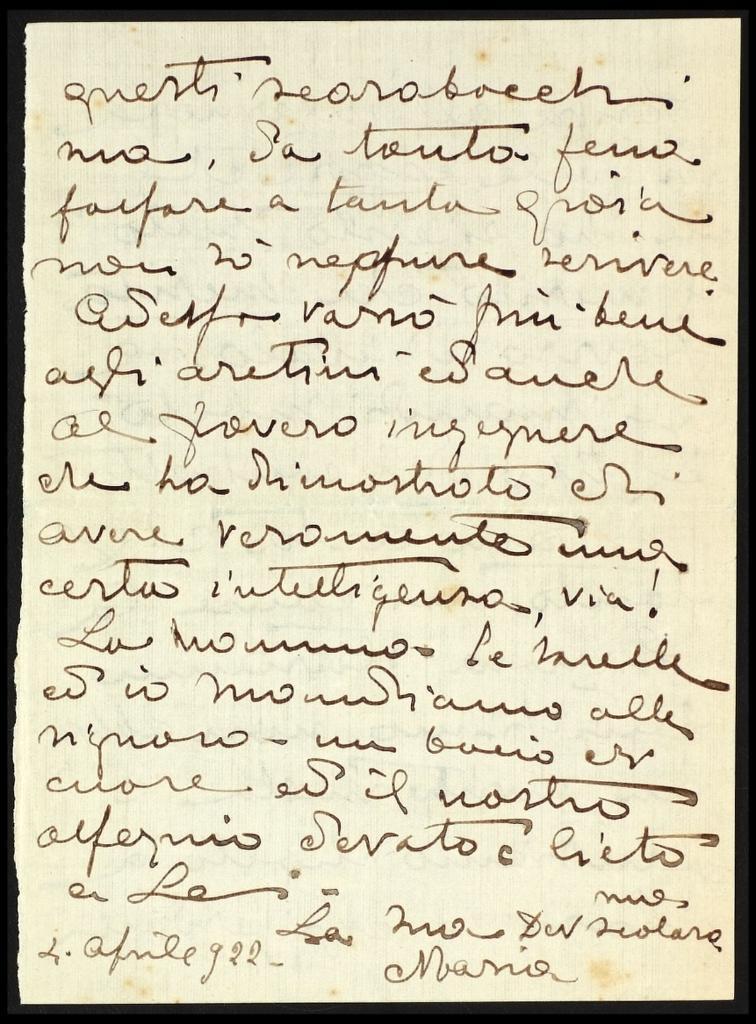 questi scarabocchi
ma, da tanta pena
passare a tanta gioia
non sò neppure scrivere.
Adesso varrò più bene
agli aretini ed anche
al povero ingegnere
che ha dimostrato di
avere veramente una
certa intelligenza, via!
La mamma le sorelle
ed io mandiamo alla
signora - un bacio di
cuore ed il nostro
ossequio devato e lieto
a Lei -
La sua Dev sua scolara
Maria
4. Aprile 922 -